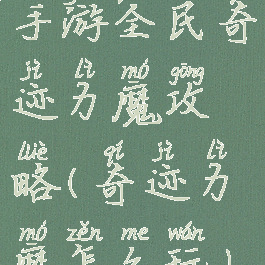 手游全民奇
jì lì mó gōng
迹力魔攻
lüè qí jì lì
略(奇迹力
mó zěn me wán
魔怎么玩)